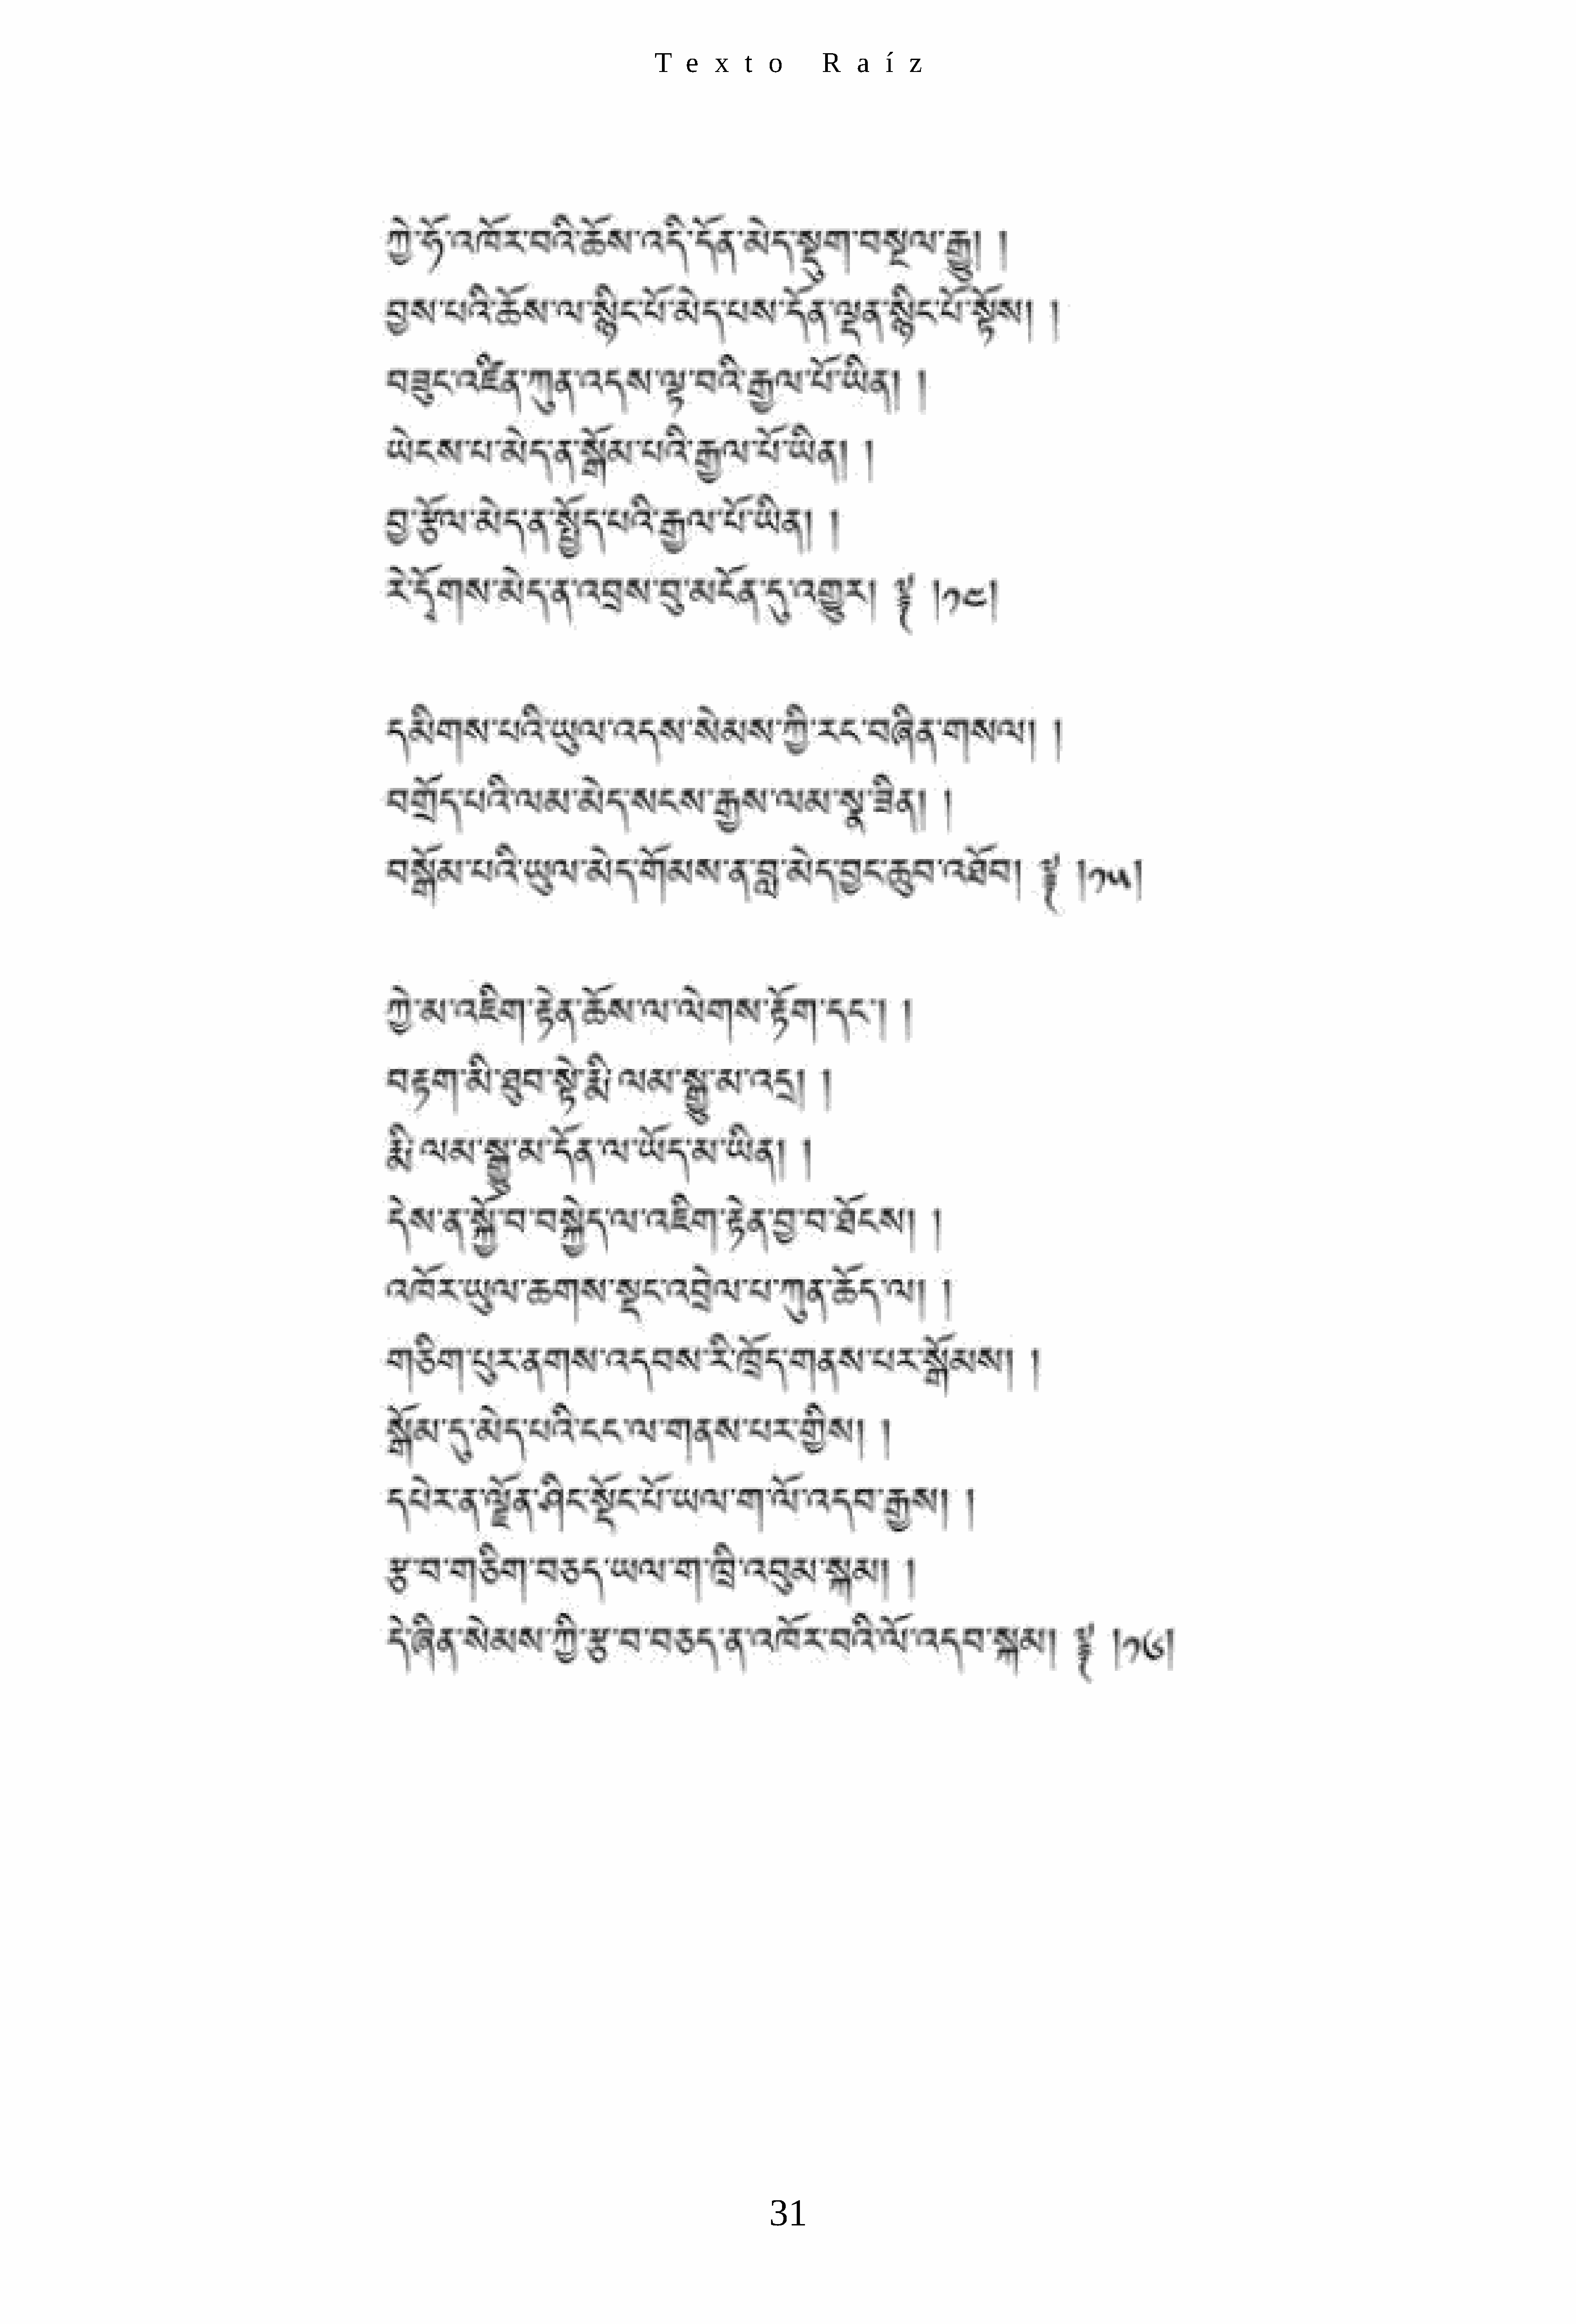 Texto Raíz
ཀྱེ་ཧོ་འཁོར་བའི་ཆོས་འདི་དོན་མེད་སྡུག་བསྔལ་རྒྱུ། །
བྱས་པའི་ཆོས་ལ་སྙིང་པོ་མེད་པས་དོན་ལྡན་སྙིང་པོ་ལྟོས། །
བཟུང་འཛིན་ཀུན་འདས་ལྟ་བའི་རྒྱལ་པོ་ཡིན། །
ཡེངས་པ་མེད་ན་སྒོམ་པའི་རྒྱལ་པོ་ཡིན། །
བྱ་རྩོལ་མེད་ན་སྤྱོད་པའི་རྒྱལ་པོ་ཡིན། །
རེ་དྭོགས་མེད་ན་འབྲས་བུ་མངོན་དུ་འགྱུར། ༈ །༡༤།
དམིགས་པའི་ཡུལ་འདས་སེམས་ཀྱི་རང་བཞིན་གསལ། །
བགྲོད་པའི་ལམ་མེད་སངས་རྒྱས་ལམ་སྣ་ཟིན། །
བསྒོམ་པའི་ཡུལ་མེད་གོམས་ན་བླ་མེད་བྱང་ཆུབ་འཐོབ། ༈ །༡༥།
ཀྱེ་མ་འཇིག་རྟེན་ཆོས་ལ་ལེགས་རྟོག་དང་། །
བརྟག་མི་ཐུབ་སྟེ་རྨི་ལམ་སྒྱུ་མ་འདྲ། །
རྨི་ལམ་སྒྱུ་མ་དོན་ལ་ཡོད་མ་ཡིན། །
དེས་ན་སྐྱོ་བ་བསྐྱེད་ལ་འཇིག་རྟེན་བྱ་བ་ཐོངས། །
འཁོར་ཡུལ་ཆགས་སྡང་འབྲེལ་པ་ཀུན་ཆོད་ལ། །
གཅིག་པུར་ནགས་འདབས་རི་ཁྲོད་གནས་པར་སྒོམས། །
སྒོམ་དུ་མེད་པའི་ངང་ལ་གནས་པར་གྱིས། །
དཔེར་ན་ལྗོན་ཤིང་སྡོང་པོ་ཡལ་ག་ལོ་འདབ་རྒྱས། །
རྩ་བ་གཅིག་བཅད་ཡལ་ག་ཁྲི་འབུམ་སྐམ། །
དེ་ཞིན་སེམས་ཀྱི་རྩ་བ་བཅད་ན་འཁོར་བའི་ལོ་འདབ་སྐམ། ༈ །༡༦།
31